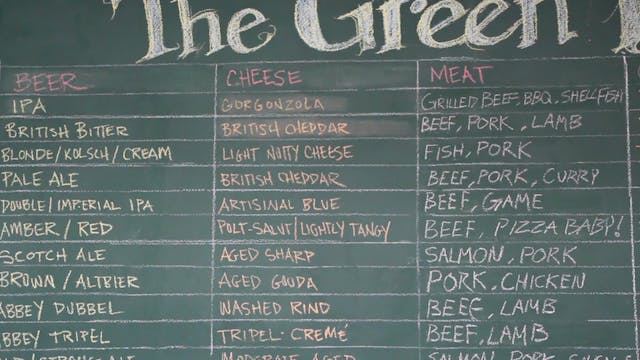 The Green
BEER CHEESE MEAT
IPA GORGONZOLA GRILLED BEEF, BBQ, SHELLFISH
BRITISH BITTER BRITISH CHEDDAR BEEF, PORK, LAMB
BLONDE/KOLSCH/CREAM LIGHT NUTTY CHEESE FISH, PORK
PALE ALE BRITISH CHEDDAR BEEF, PORK, CURRY
DOUBLE/IMPERIAL IPA ARTISINAL BLUE BEEF, GAME
AMBER/RED POLT-SALUT/LIGHTLY TANGY BEEF, PIZZA BABY!
SCOTCH ALE AGED SHARP SALMON, PORK
BROWN/ALTBIER AGED GOUDA PORK, CHICKEN
ABBEY DUBBEL WASHED RIND BEEF, LAMB
ABBEY TRIPEL TRIPEL-CREMÉ BEEF, LAMB
MODERATE AGED SALMON, PORK